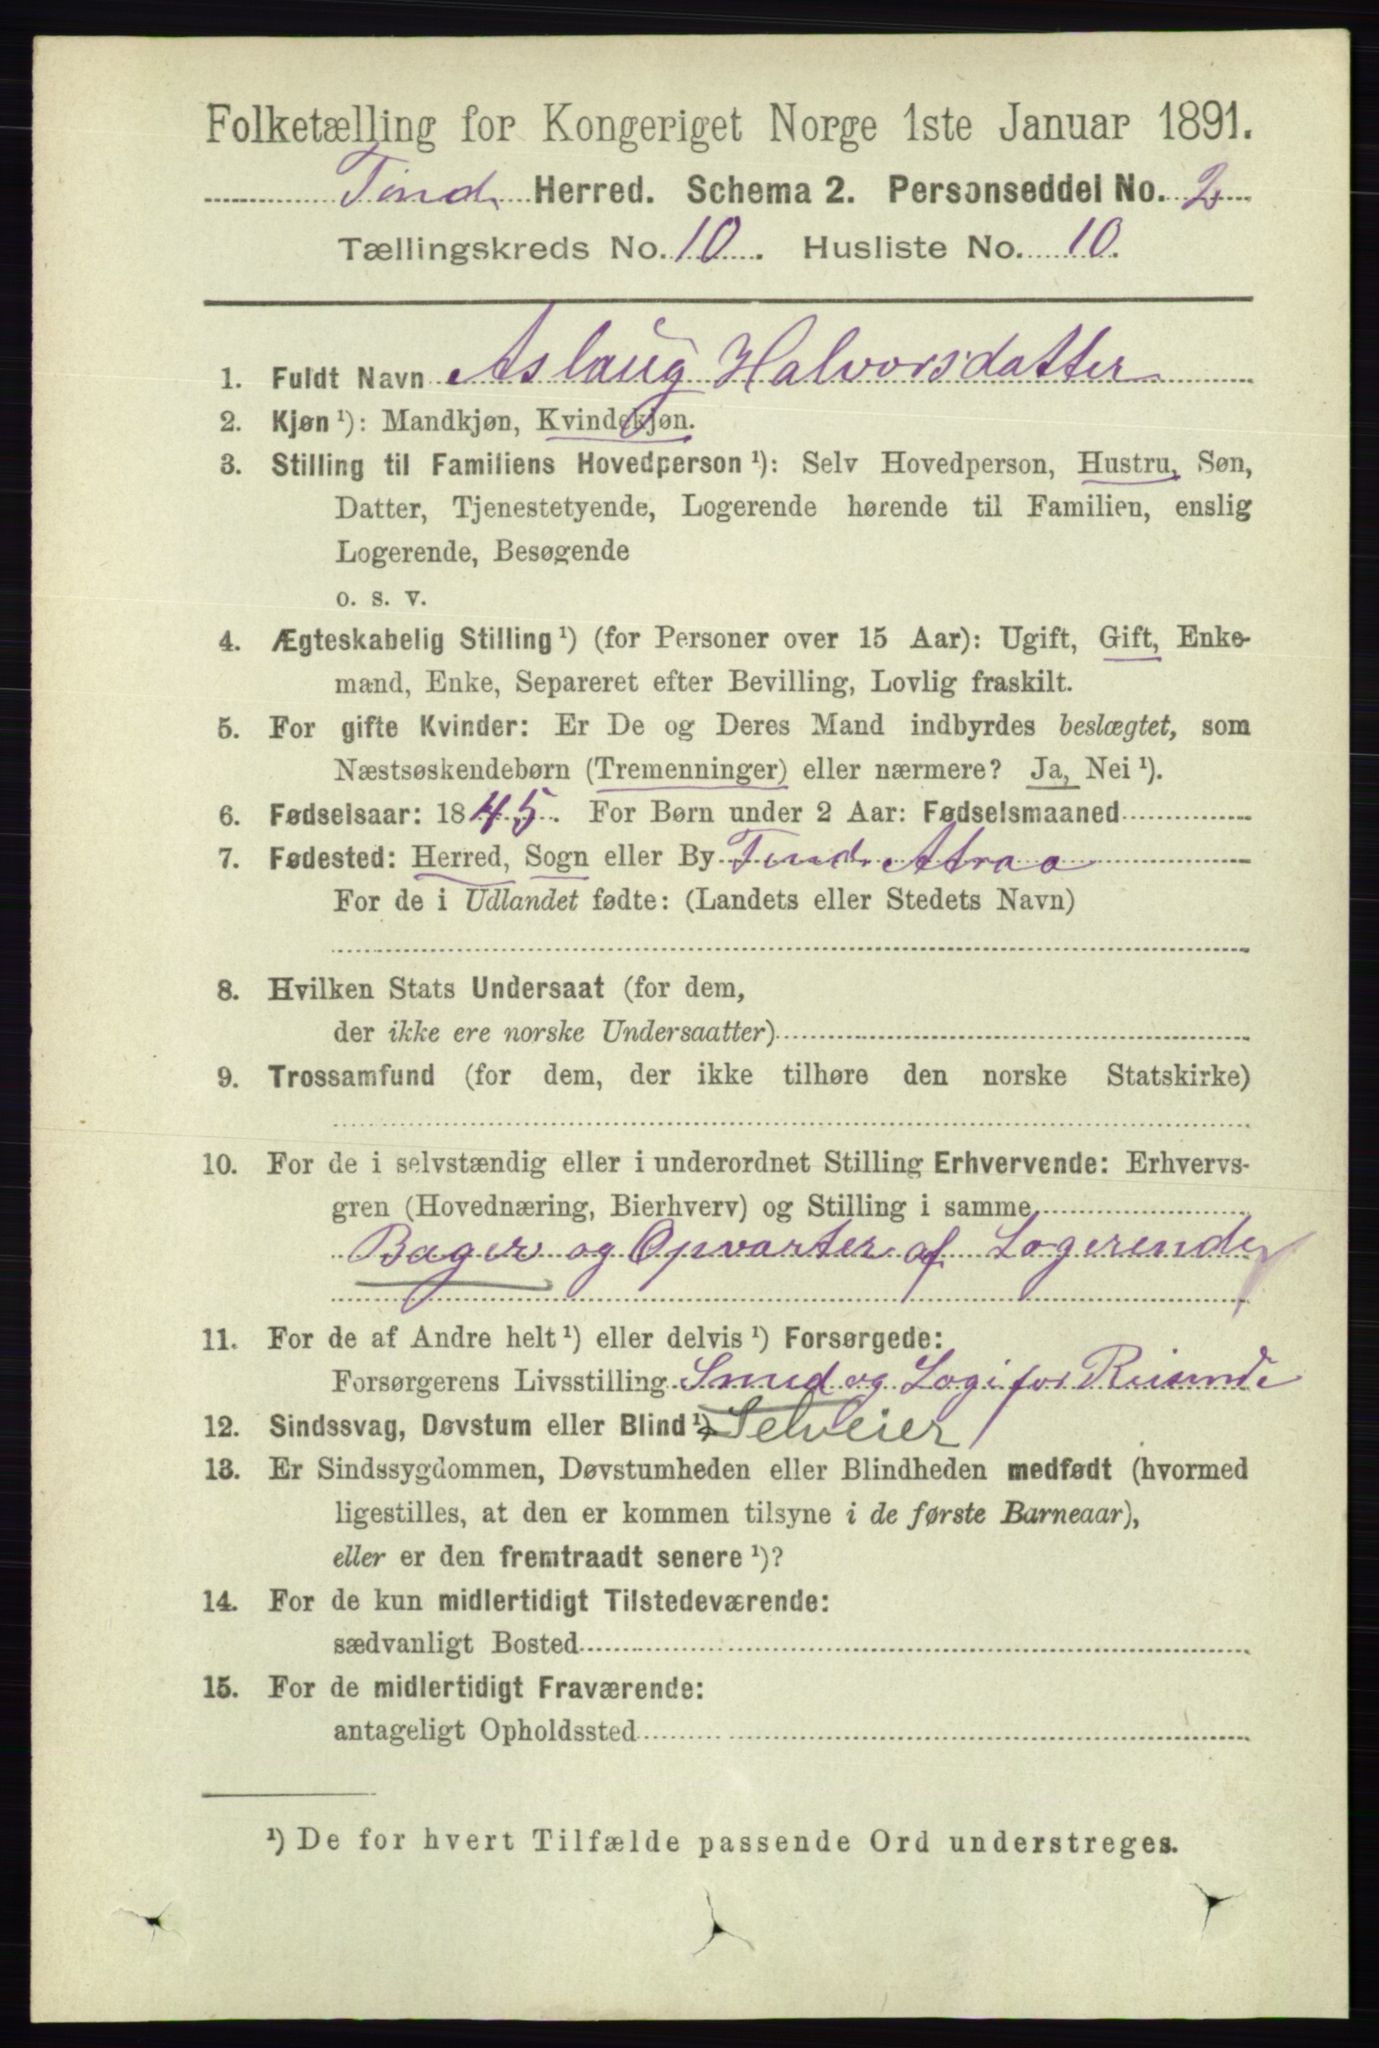 Folketælling for Kongeriget Norge 1ste Januar 1891.
Tind Herred. Schema 2. Personseddel No. 2
Tællingskreds No. 10. Husliste No. 10.
1. Fuldt Navn Aslaug Halvorsdatter
2. Kjøn ¹): Mandkjøn, Kvindekjøn.
3. Stilling til Familiens Hovedperson ¹): Selv Hovedperson, Hustru, Søn,
Datter, Tjenestetyende, Logerende hørende til Familien, enslig
Logerende, Besøgende
o. s. v.
4. Ægteskabelig Stilling ¹) (for Personer over 15 Aar): Ugift, Gift, Enke-
mand, Enke, Separeret efter Bevilling, Lovlig fraskilt.
5. For gifte Kvinder: Er De og Deres Mand indbyrdes beslægtet, som
Næstsøskendebørn (Tremenninger) eller nærmere? Ja, Nei ¹).
6. Fødselsaar: 1845. For Børn under 2 Aar: Fødselsmaaned
7. Fødested: Herred, Sogn eller By Tind. Atraa
For de i Udlandet fødte: (Landets eller Stedets Navn)
8. Hvilken Stats Undersaat (for dem,
der ikke ere norske Undersaatter)
9. Trossamfund (for dem, der ikke tilhøre den norske Statskirke)
10. For de i selvstændig eller i underordnet Stilling Erhvervende: Erhvervs-
gren (Hovednæring, Bierhverv) og Stilling i samme
Bager og Opvarter af Logerende
11. For de af Andre helt ¹) eller delvis ¹) Forsørgede:
Forsørgerens Livsstilling Smed og Logi for Reisende
12. Sindssvag, Døvstum eller Blind ¹) Selveier
13. Er Sindssygdommen, Døvstumheden eller Blindheden medfødt (hvormed
ligestilles, at den er kommen tilsyne i de første Barneaar),
eller er den fremtraadt senere ¹)?
14. For de kun midlertidigt Tilstedeværende:
sædvanligt Bosted
15. For de midlertidigt Fraværende:
antageligt Opholdssted
¹) De for hvert Tilfælde passende Ord understreges.